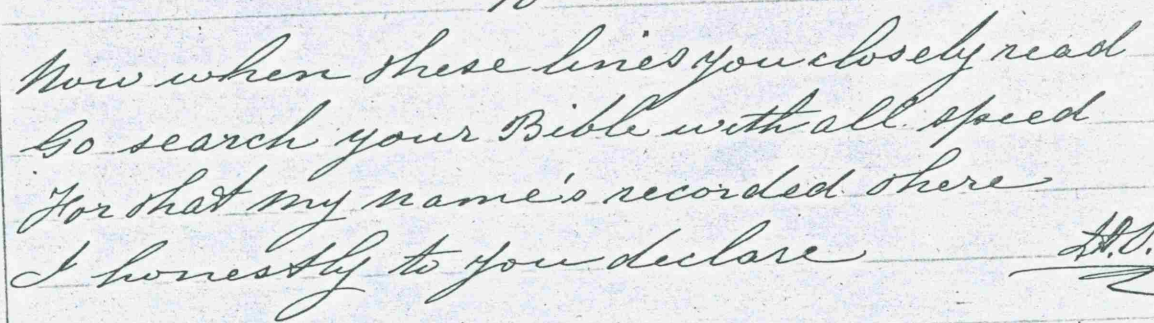 Now when these lines you closely read
Go search your Bible with all speed
For that my name's recorded there
I honestly to you declare